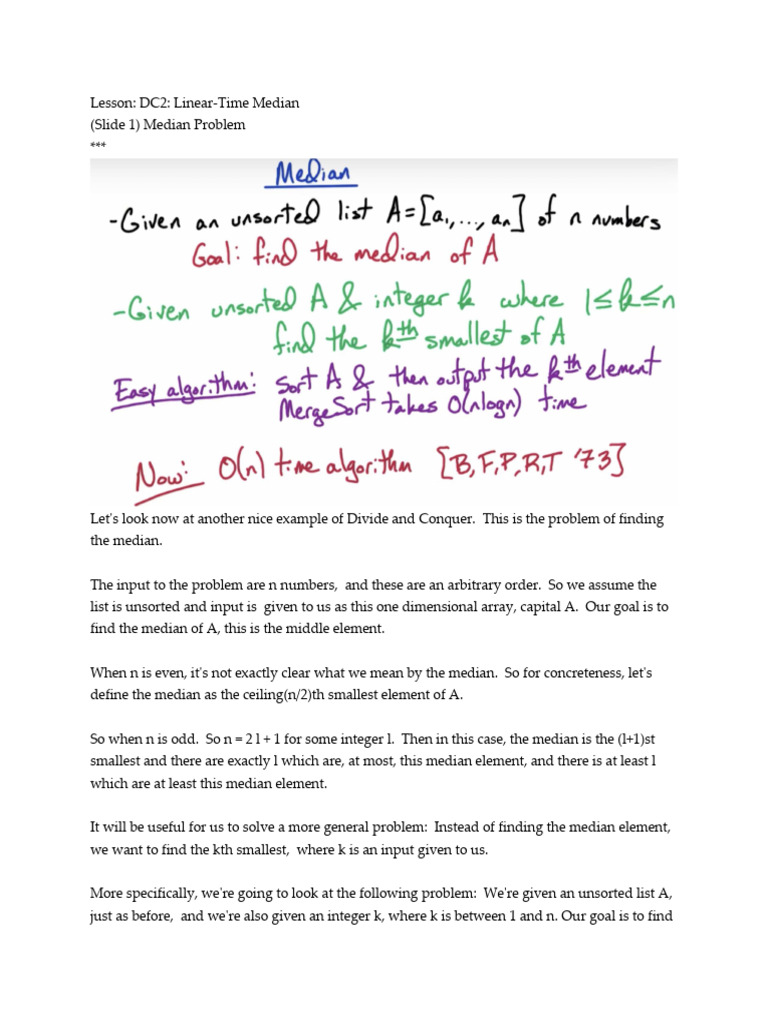 Lesson: DC2: Linear-Time Median
(Slide 1) Median Problem
***
Median
-Given an unsorted list A=[a₁,...,aₙ] of n numbers
Goal: find the median of A
-Given unsorted A & integer k where 1≤k≤n
find the kᵗʰ smallest of A
Easy algorithm: Sort A & then output the kᵗʰ element
MergeSort takes O(nlogn) time
Now: O(n) time algorithm [B,F,P,R,T '73]
Let's look now at another nice example of Divide and Conquer. This is the problem of finding
the median.
The input to the problem are n numbers, and these are an arbitrary order. So we assume the
list is unsorted and input is given to us as this one dimensional array, capital A. Our goal is to
find the median of A, this is the middle element.
When n is even, it's not exactly clear what we mean by the median. So for concreteness, let's
define the median as the ceiling(n/2)th smallest element of A.
So when n is odd. So n = 2 l + 1 for some integer l. Then in this case, the median is the (l+1)st
smallest and there are exactly l which are, at most, this median element, and there is at least l
which are at least this median element.
It will be useful for us to solve a more general problem: Instead of finding the median element,
we want to find the kth smallest, where k is an input given to us.
More specifically, we're going to look at the following problem: We're given an unsorted list A,
just as before, and we're also given an integer k, where k is between 1 and n. Our goal is to find